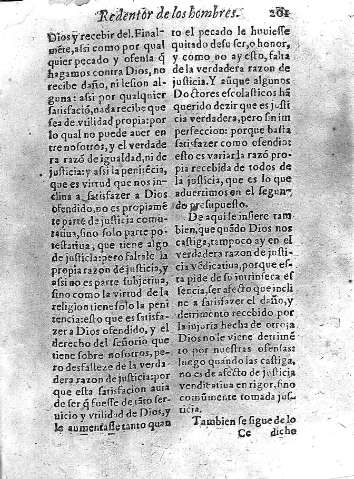 Redentor de los hombres. 201
Dios y recebir del. Final-
mẽte, assi como por qual
quier pecado y ofensa q̃
hagamos contra Dios, no
recibe daño, ni lesion al-
guna: assi por qualquier
satisfació, nada recibe que
sea de vtilidad propia: por
lo qual no puede auer en
tre nosotros, y el verdade
ra razó de igualdad, ni de
justicia: y assi la penitécia,
que es virtud que nos in-
clina a satisfazer a Dios
ofendido, no es propiamẽ
te parte de justicia comu-
tatiua, sino solo parte po-
testatiua, que tiene algo
de justicia: pero faltale la
propia razon de justicia, y
assi no es parte subjetiua,
sino como la virtud de la
religion tiene solo la peni
tencia: esto que es satisfa-
zer a Dios ofendido, y el
derecho del señorio que
tiene sobre nosotros, pe-
ro desfalleze de la verda-
dera razon de justicia: por
que esta satisfacion auia
de ser q̃ fuesse de táto ser-
uicio y vtilidad de Dios, y
le aumentasse tanto quan
to el pecado le huuiesse
quitado de su ser, o honor,
y como no ay esto, falta
de la verdadera razon de
justicia. Y aũque algunos
Doctores escolasticos há
querido dezir que es justi
cia verdadera, pero sin im
perfeccion: porque basta
satisfazer como ofendio:
esto es variar la razó pro-
pia recebida de todos de
la justicia, que es lo que
aduertimos en el segun-
do presupuesto.
De aqui se infiere tam
bien, que quãdo Dios nos
castiga, tampoco ay en el
verdadera razon de justi-
cia védicatiua, porque es-
ta pide de su intrinseca es
sencia, ser afecto que incli
ne a satisfazer el daño, y
detrimento recebido por
la injuria hecha de otro: a
Dios no le viene detrimẽ
to por nuestras ofensas:
luego quando las castiga,
no es de afecto de justicia
venditatiua en rigor, sino
comũmente tomada jus-
ticia.
Tambien se sigue de lo
Cc dicho